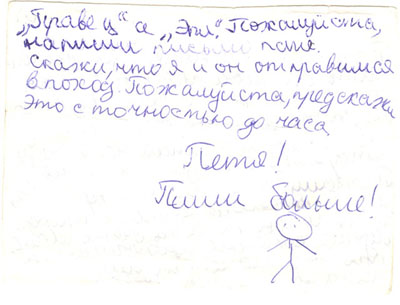 „Правец“ а „Эпл“. Пожалуйста,
напиши письмо пете.
скажи, что я и он отправимся
в поход. Пожалуйста, предскажи
это с точностью до часа
Петя!
Пиши больше!